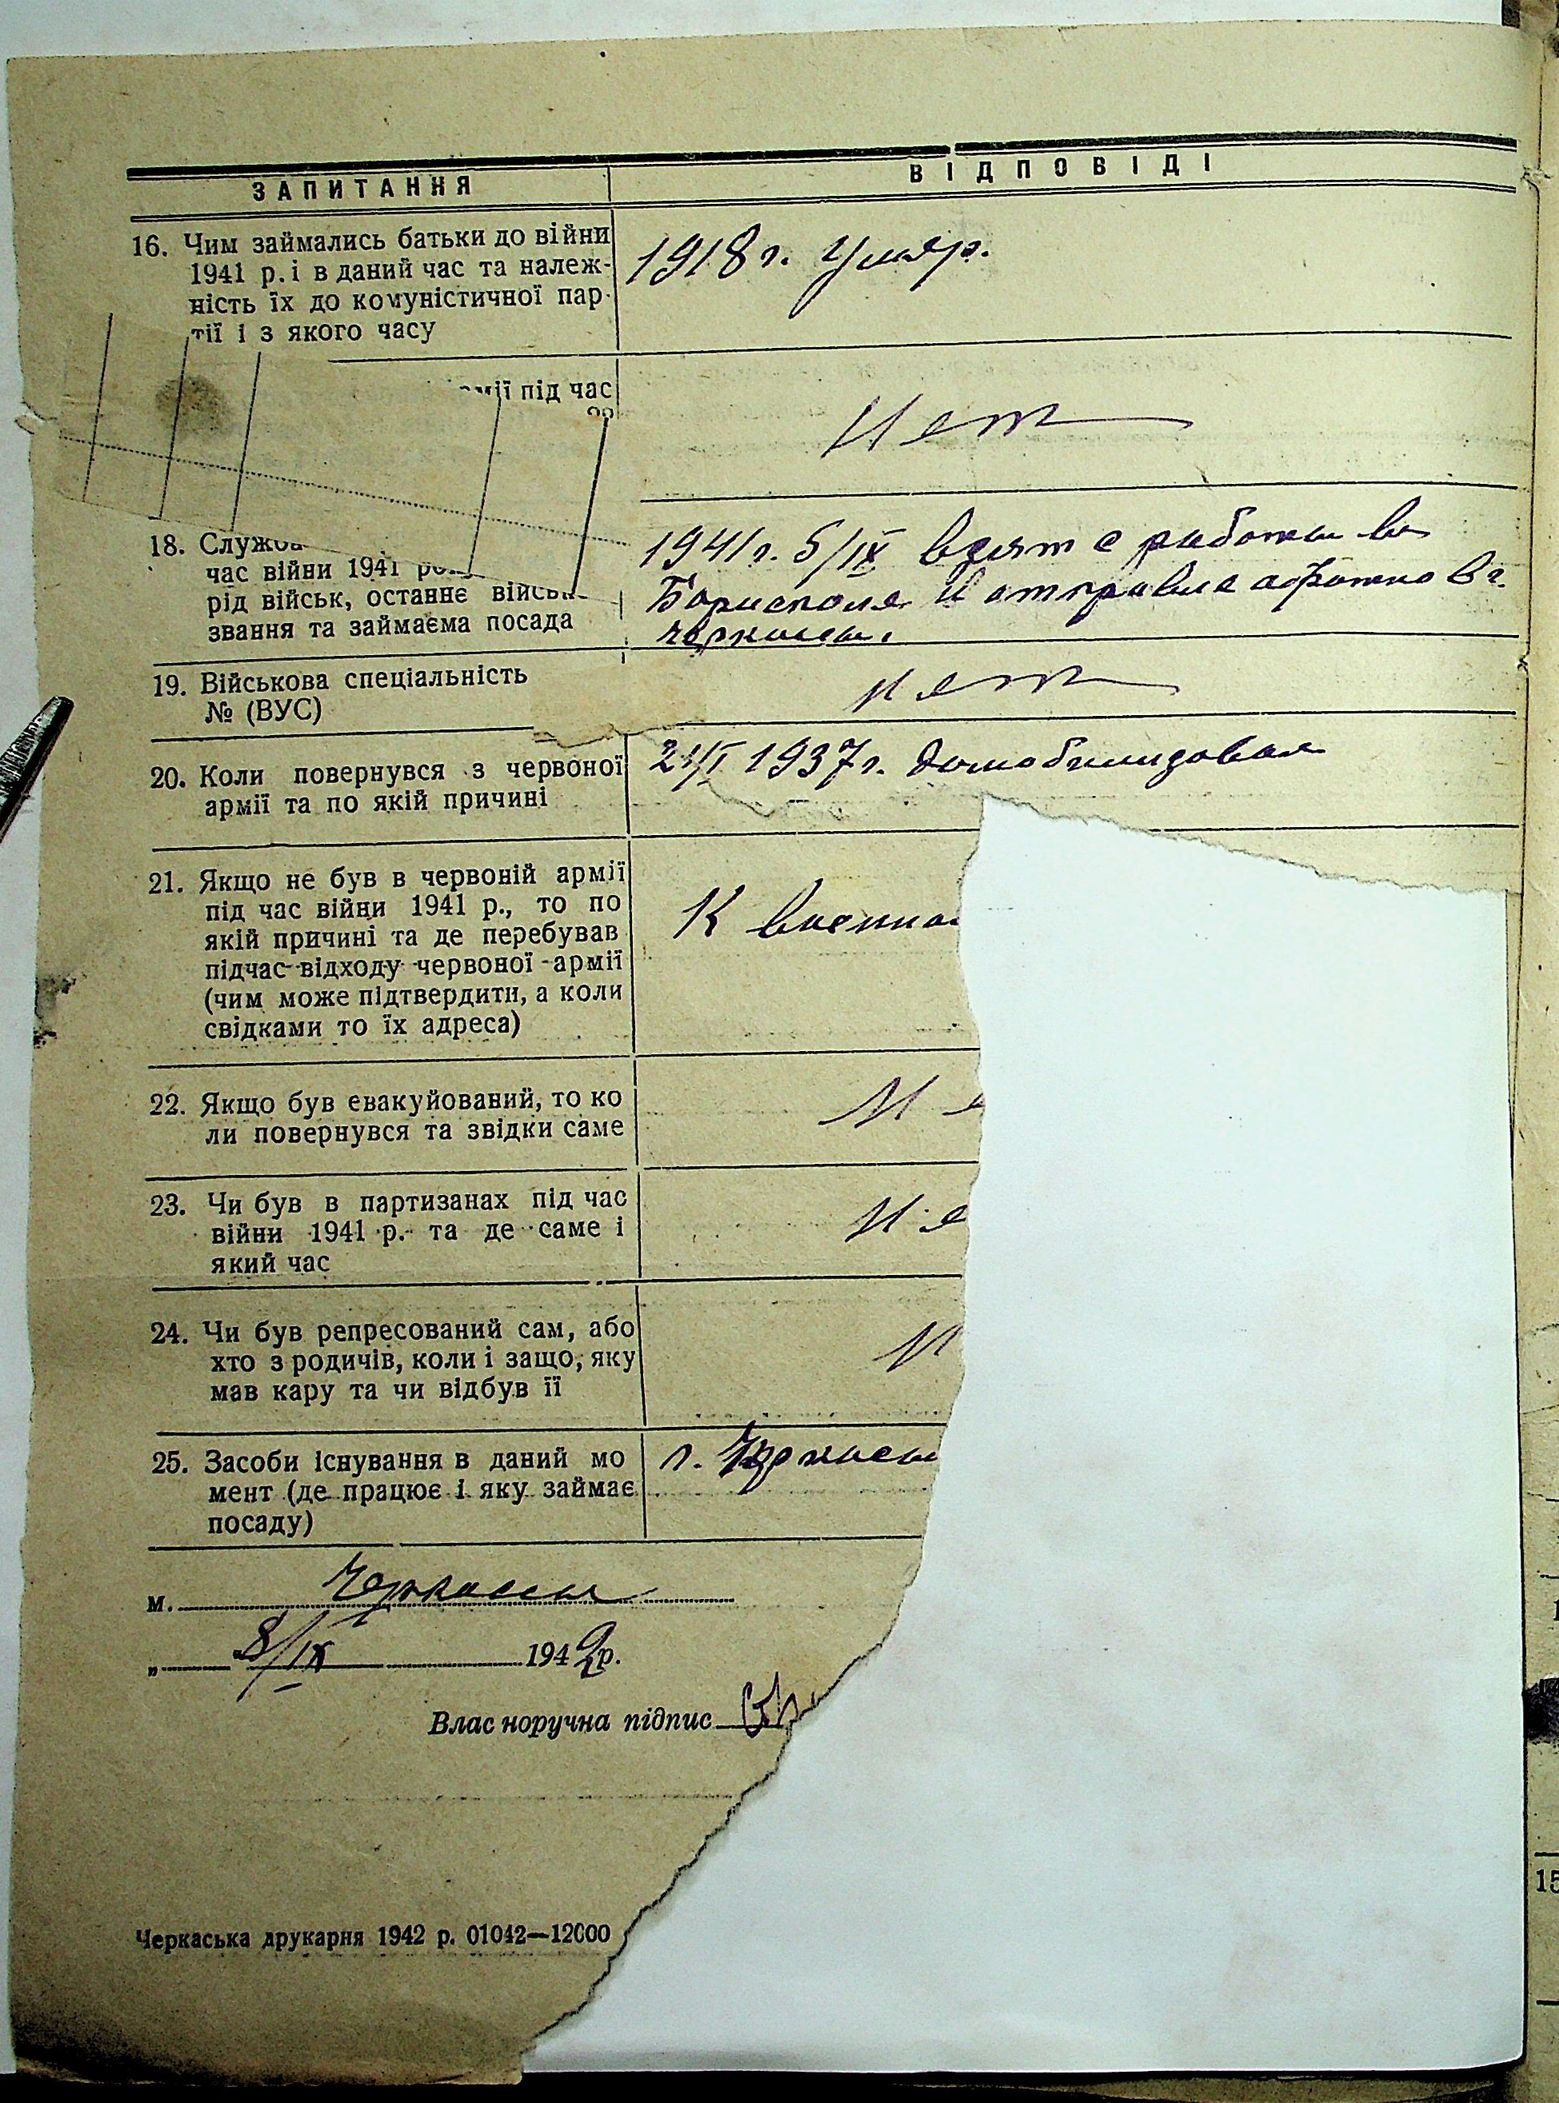 ЗАПИТАННЯ
ВІДПОВІДІ
16. Чим займались батьки до війни
1941 р. і в даний час та належ-
ність їх до комуністичної пар-
тії і з якого часу
1918 г. умер.
армії під час
Нет
18. Служба
час війни 1941
рід військ, останнє військ
звання та займаєма посада
1941 г. 5/IX взят с работы в
Борисполе и отправле в г.
Черкассы.
19. Військова спеціальність
№ (ВУС)
нет
20. Коли повернувся з червоної
армії та по якій причині
1937 г.
21. Якщо не був в червоній армії
під час війни 1941 р., то по
якій причині та де перебував
підчас відходу червоної армії
(чим може підтвердити, а коли
свідками то їх адреса)
К военно
22. Якщо був евакуйований, то ко
ли повернувся та звідки саме
Не
23. Чи був в партизанах під час
війни 1941 р. та де саме і
який час
Не
24. Чи був репресований сам, або
хто з родичів, коли і защо, яку
мав кару та чи відбув її
Н
25. Засоби існування в даний мо
мент (де працює і яку займає
посаду)
г. Черкассы
м. Черкассы
„ 8/IX 1942 р.
Власноручна підпис
Черкаська друкарня 1942 р. 01042—12000
15